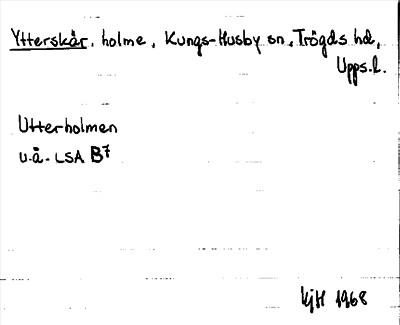 Ytterskär, holme, Kungs-Husby sn, Trögds hd,
Upps.l.
Utterholmen
u.å. LSA B7
KjH 1968